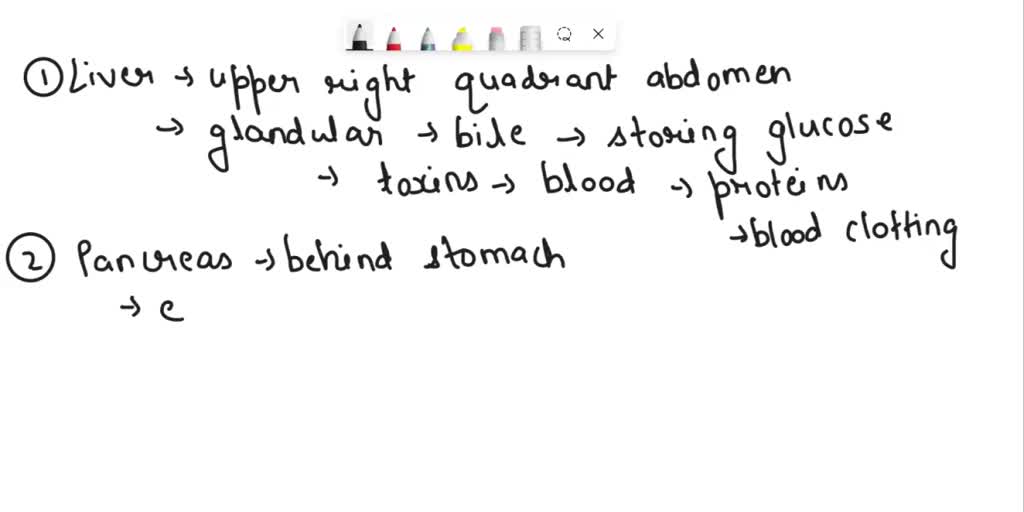 ① Liver → upper right quadrant abdomen
→ glandular → bile → storing glucose
→ toxins → blood → proteins
→ blood clotting
② Pancreas → behind stomach
→ e